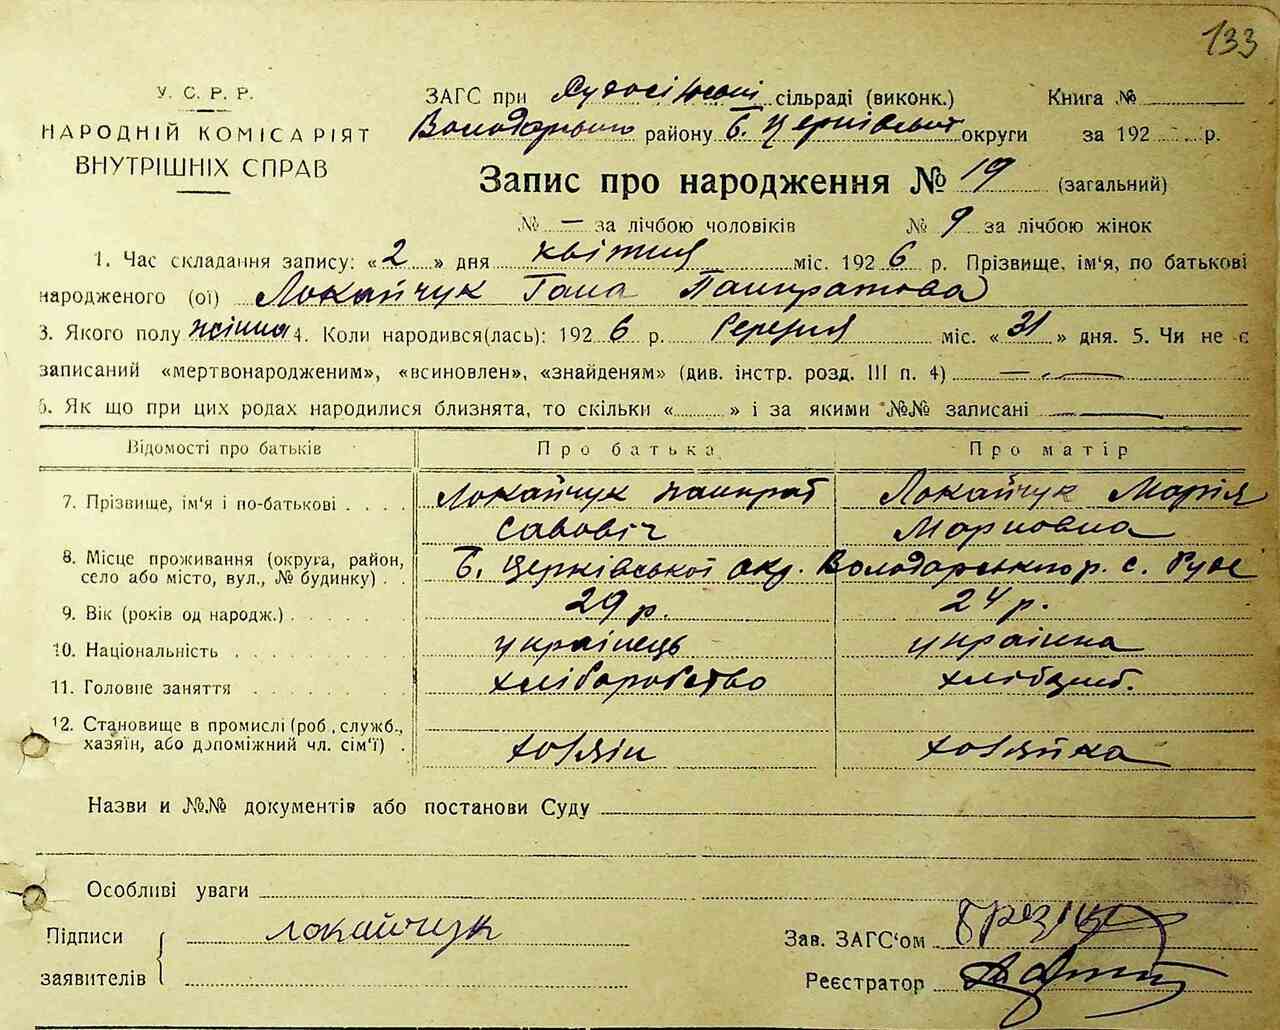 133
У. С. Р. Р.
НАРОДНІЙ КОМІСАРІЯТ
ВНУТРІШНІХ СПРАВ
ЗАГС при сільраді (виконк.) Книга №
Володарського району Б. Церківської округи за 192 р.
Запис про народження № 19 (загальний)
№ — за лічбою чоловіків № 9 за лічбою жінок
1. Час складання запису: «2» дня квітня міс. 1926 р. Прізвище, ім'я, по батькові
народженого (ої) Локайчук Гана Панкратова
3. Якого полу жіноч 4. Коли народився(лась): 1926 р. березня міс. «31» дня. 5. Чи не є
записаний «мертвонародженим», «всиновлен», «знайденям» (див. інстр. розд. III п. 4) —
6. Як що при цих родах народилися близнята, то скільки « » і за якими №№ записані —
Відомості про батьків Про батька Про матір
7. Прізвище, ім'я і по-батькові Локайчук Панкрат Савовіч Локайчук Марія Марковна
8. Місце проживання (округа, район,
село або місто, вул., № будинку) Б. Церківської окр. Володарського р. с. Рубе
9. Вік (років од народж.) 29 р. 24 р.
10. Національність українець українка
11. Головне заняття хліборобство хлібороб.
12. Становище в промислі (роб., служб.,
хазяїн, або допоміжний чл. сім'ї) хозяін хозяйка
Назви и №№ документів або постанови Суду
Особливі уваги
Підписи
заявителів
Локайчук
Зав. ЗАГС'ом
Реєстратор